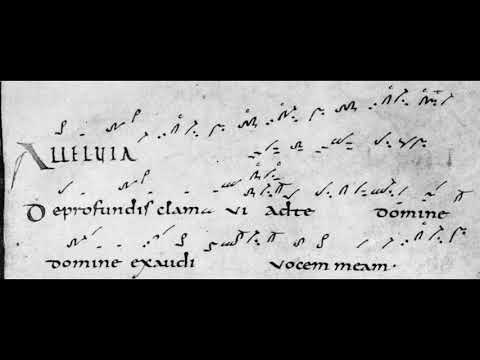 ALLELUIA
De profundis clama vi ad te domine
domine exaudi vocem meam.